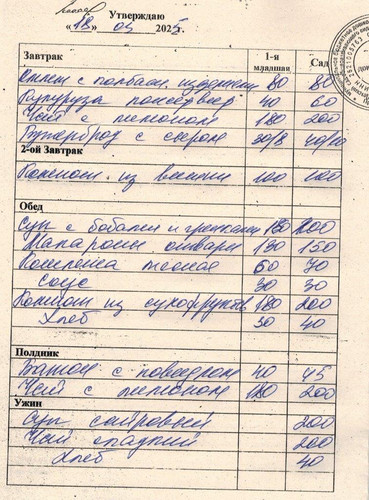 Утверждаю
«18» 03 2025 г.
Завтрак 1-я младшая Сад
Омлет с 80 80
Кукуруза консервир 40 60
Чай с лимоном 180 200
Бутерброд с сыром 30/8 40/10
2-ой Завтрак
Компот из вишни 100 100
Обед
Суп с бобами и гренками 180 200
Макароны отварн 130 150
Котлета мясная 60 70
Соус 30 30
Компот из сухофруктов 180 200
Хлеб 30 40
Полдник
Батон с повидлом 40 45
Чай с лимоном 180 200
Ужин
Суп сырный 200
Чай сладкий 200
Хлеб 40